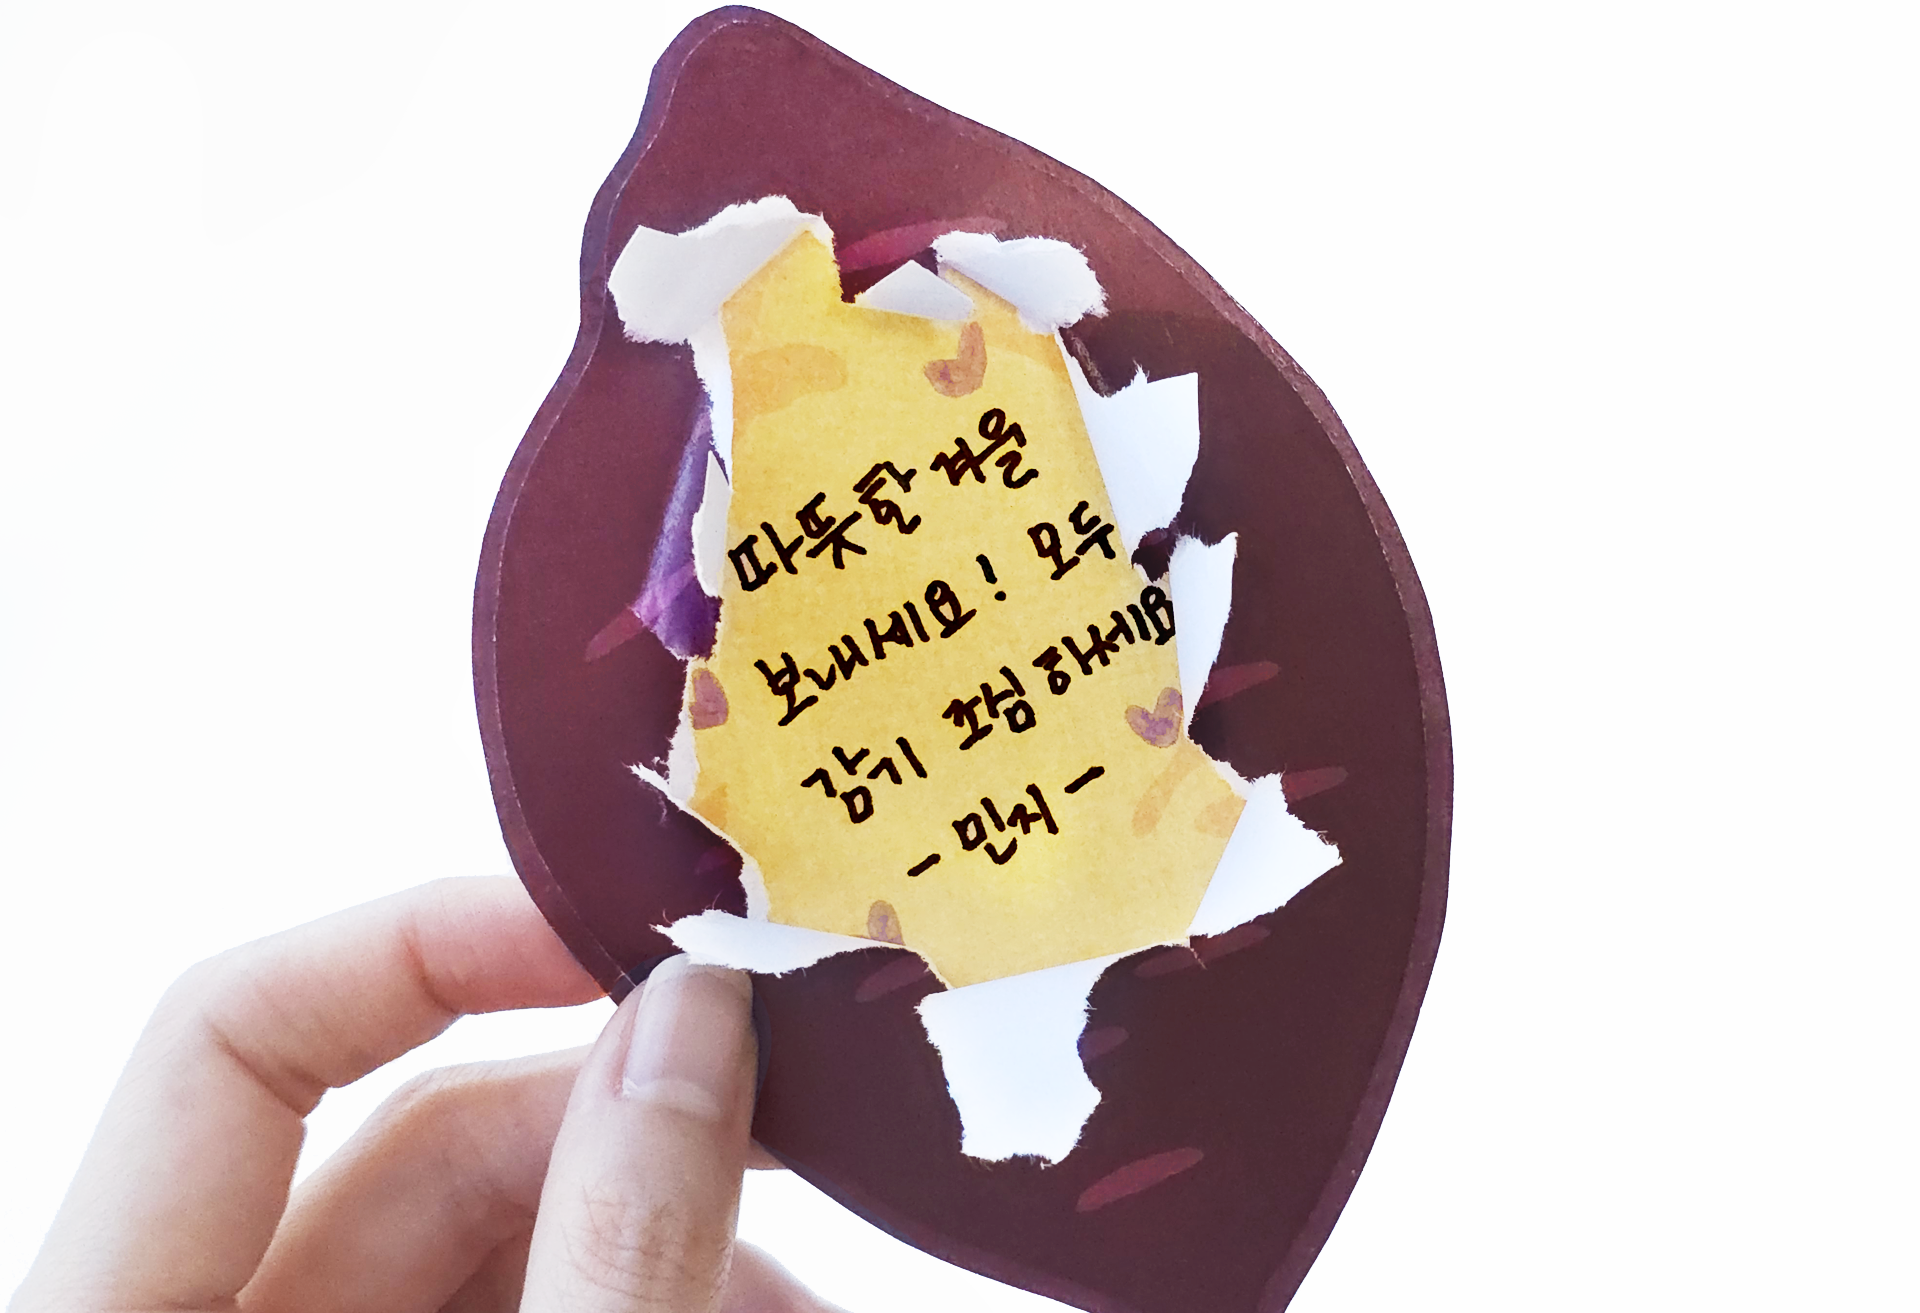 따뜻한 겨울
보내세요! 모두
감기 조심 하세요
- 민지 -